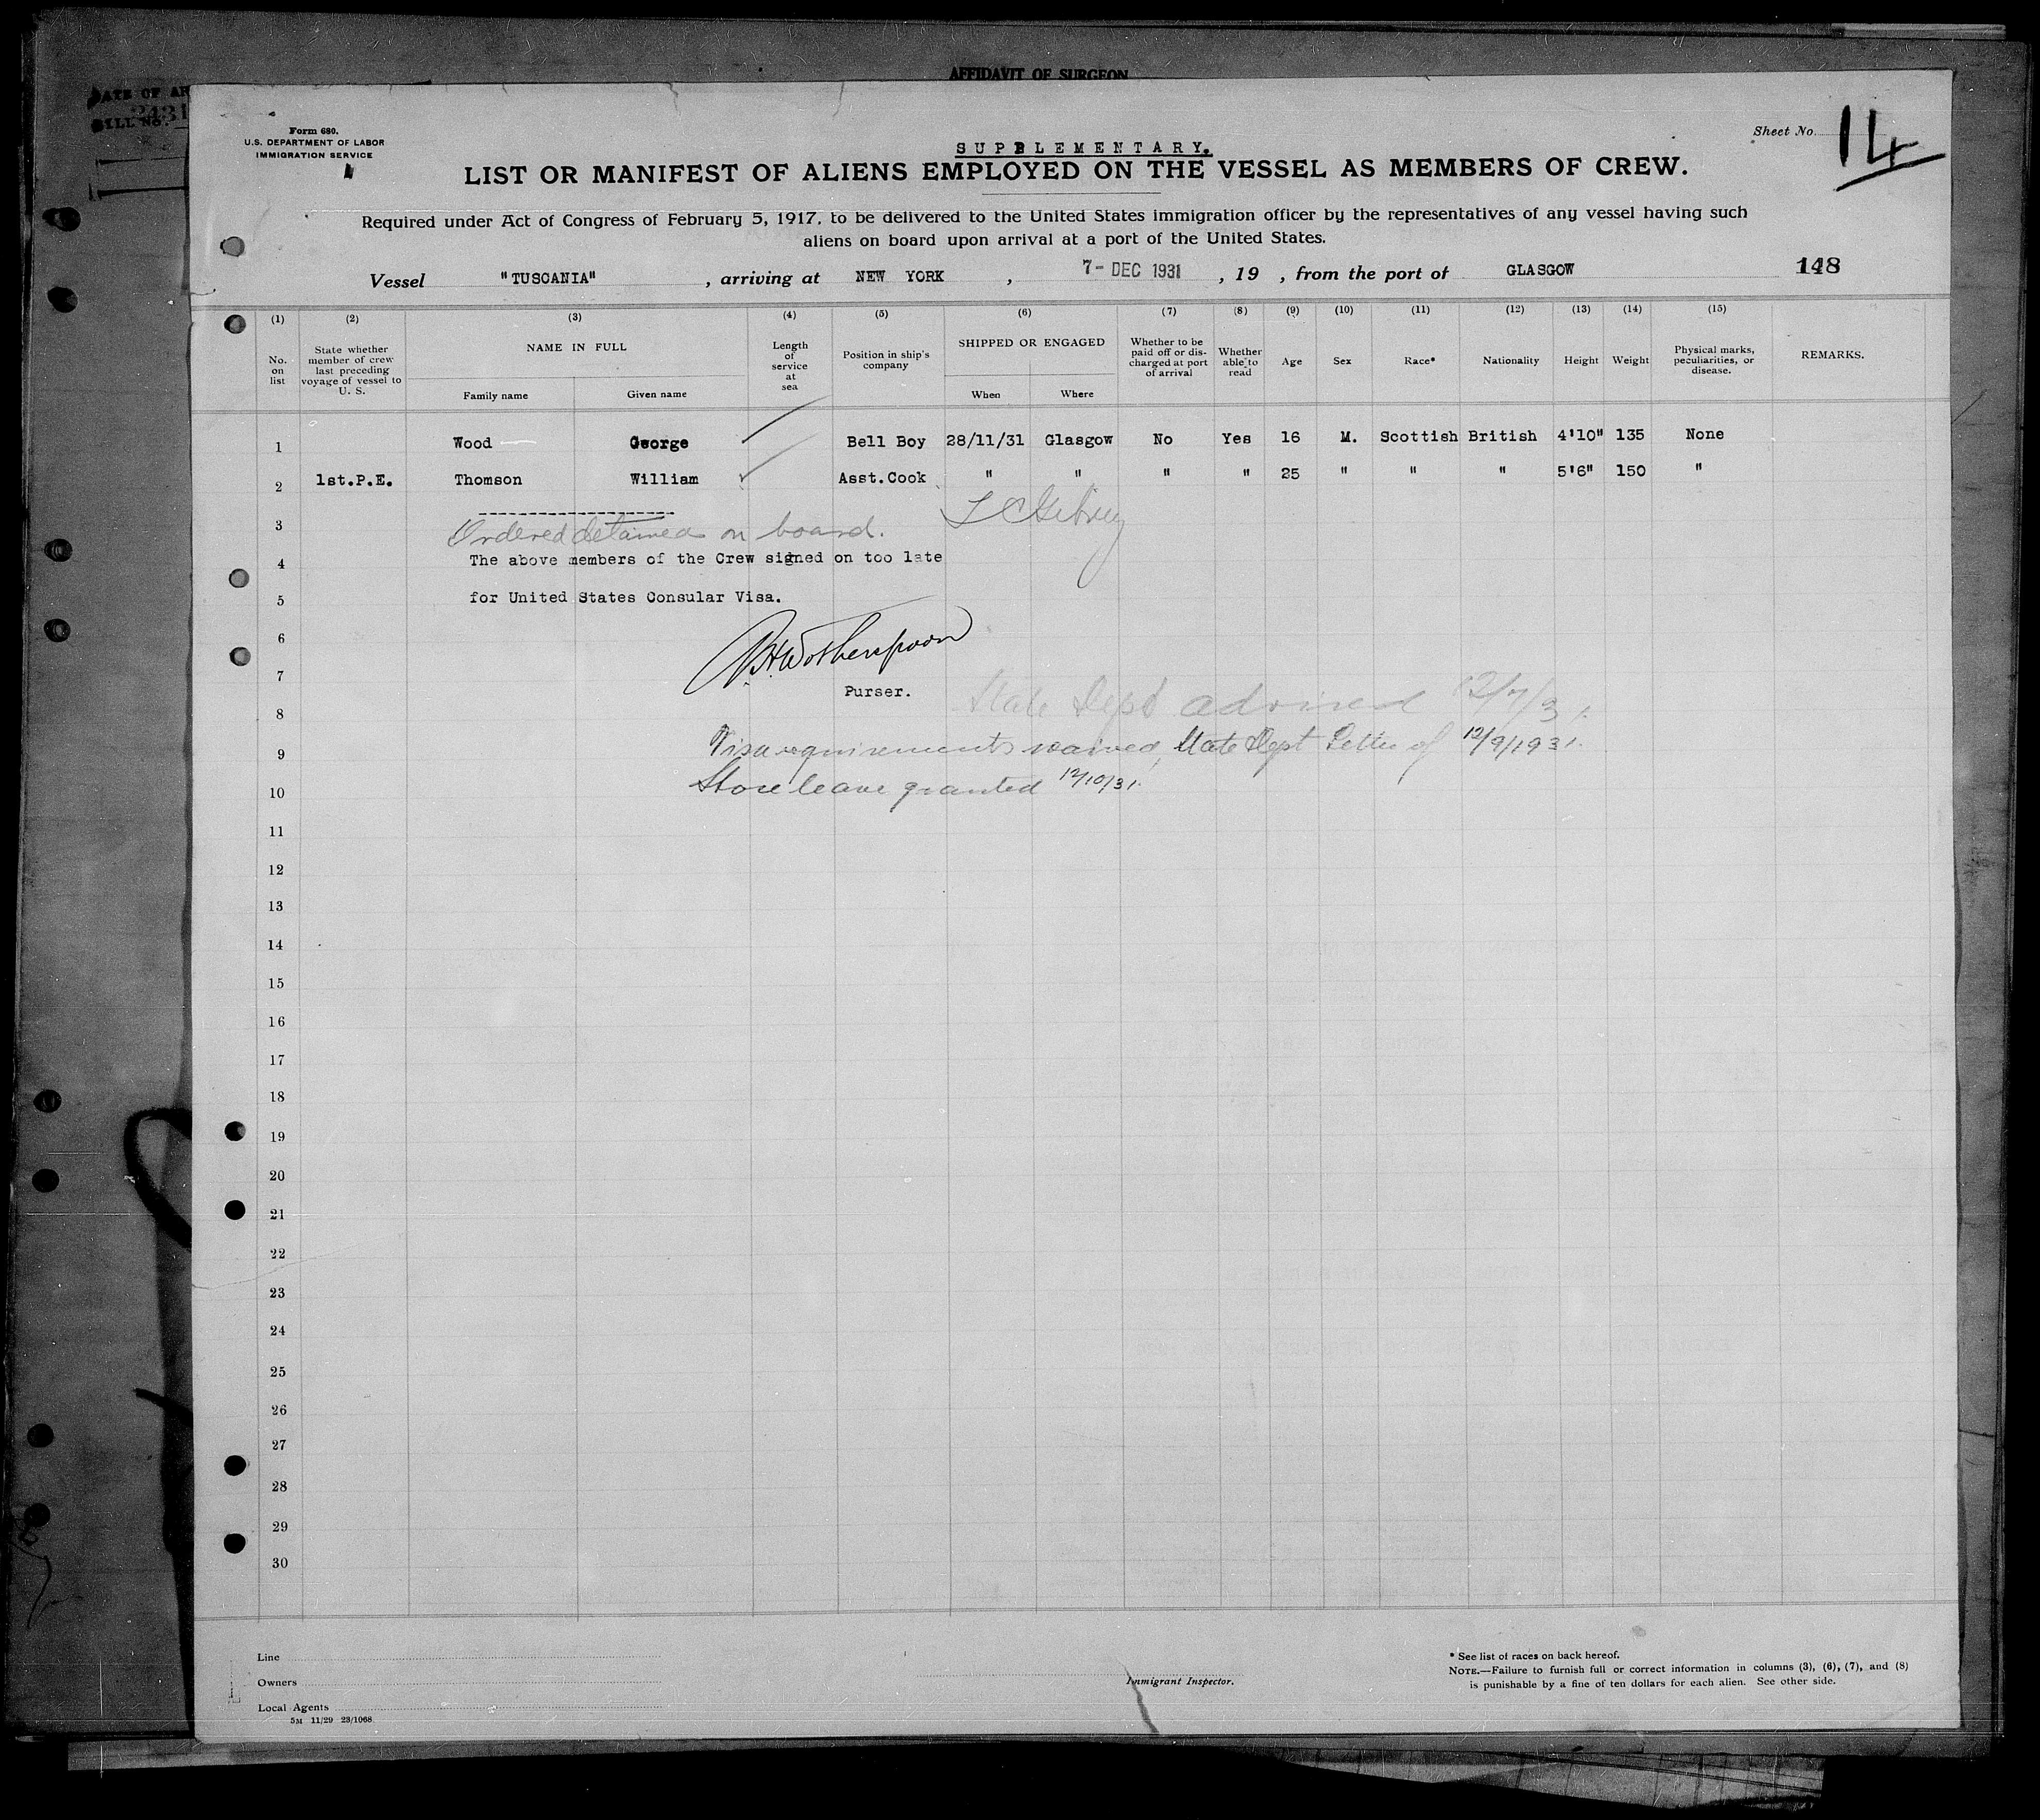 AFFIDAVIT OF SURGEON
DATE OF AR
BILL No.
Form 680.
U.S. DEPARTMENT OF LABOR
IMMIGRATION SERVICE
Sheet No. 14
SUPPLEMENTARY.
LIST OR MANIFEST OF ALIENS EMPLOYED ON THE VESSEL AS MEMBERS OF CREW.
Required under Act of Congress of February 5, 1917, to be delivered to the United States immigration officer by the representatives of any vessel having such
aliens on board upon arrival at a port of the United States.
Vessel "TUSCANIA" , arriving at NEW YORK , 7- DEC 1931 , 19 , from the port of GLASGOW 148
(1) (2) (3) (4) (5) (6) (7) (8) (9) (10) (11) (12) (13) (14) (15)
No. on list State whether member of crew last preceding voyage of vessel to U. S. NAME IN FULL Family name Given name Length of service at sea Position in ship's company SHIPPED OR ENGAGED When Where Whether to be paid off or discharged at port of arrival Whether able to read Age Sex Race* Nationality Height Weight Physical marks, peculiarities, or disease. REMARKS.
1 Wood George Bell Boy 28/11/31 Glasgow No Yes 16 M. Scottish British 4'10" 135 None
2 1st.P.E. Thomson William Asst.Cook " " " " 25 " " " 5'6" 150 "
3 Ordered detained on board.
4 The above members of the Crew signed on too late
5 for United States Consular Visa.
6 Wotherspoon
7 Purser.
8 State Dept advised 12/7/31.
9 Visa requirements waived, State Dept Letter of 12/9/1931.
10 Shore leave granted 12/10/31.
11
12
13
14
15
16
17
18
19
20
21
22
23
24
25
26
27
28
29
30
Line
Owners
Local Agents
5M 11/29 23/1068
Immigrant Inspector.
* See list of races on back hereof.
NOTE.—Failure to furnish full or correct information in columns (3), (6), (7), and (8)
is punishable by a fine of ten dollars for each alien. See other side.